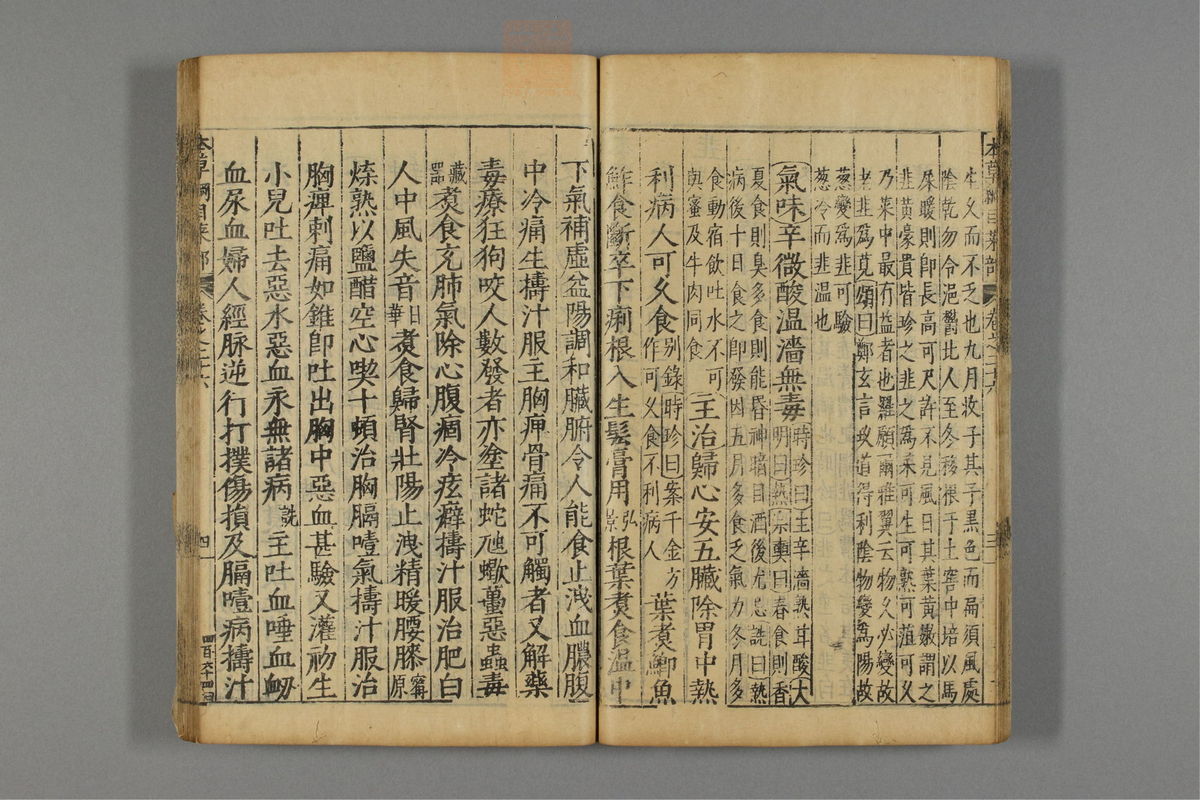 本草綱目菜部 卷之二十六 三
生久而不乏也九月收子其子黑色而扁須風處
陰乾勿令浥鬱北人至冬移根于土窖中培以馬
屎暖則卽長高可尺許不見風日其葉黃嫩謂之
韭黃豪貴皆珍之韭之爲菜可生可熟可菹可久
乃菜中最有益者也羅願爾雅翼云物久必變故
老韭爲莧頌曰鄭玄言政道得則陰物變爲陽故
葱變爲韭可驗
葱冷而韭温也
氣味辛微酸温濇無毒時珍曰生辛濇熟甘酸大
明曰熱宗奭曰春食則香
夏食則臭多食則能昏神暗目酒後尤忌詵曰熱
病後十日食之卽發困五月多食乏氣力冬月多
食動宿飲吐水不可
與蜜及牛肉同食
主治歸心安五臟除胃中熱
利病人可久食别錄時珍曰案千金方
作可久食不利病人
葉煑鯽魚
鮓食斷卒下痢根入生髮膏用弘
景根葉煑食温中
下氣補虛益陽調和臟腑令人能食止洩血膿腹
中冷痛生擣汁服主胸痺骨痛不可觸者又解藥
毒療狂狗咬人數發者亦塗諸蛇虺蠍蠆惡蟲毒
藏
器煑食充肺氣除心腹痼冷痃癖擣汁服治肥白
人中風失音日
華煑食歸腎壯陽止洩精暖腰膝甯
原
煠熟以鹽醋空心喫十頓治胸膈噎氣擣汁服治
胸痺刺痛如錐卽吐出胸中惡血甚驗又灌初生
小兒吐去惡水惡血永無諸病詵主吐血唾血衂
血尿血婦人經脉逆行打撲傷損及膈噎病擣汁
本草綱目菜部 卷之二十六 四